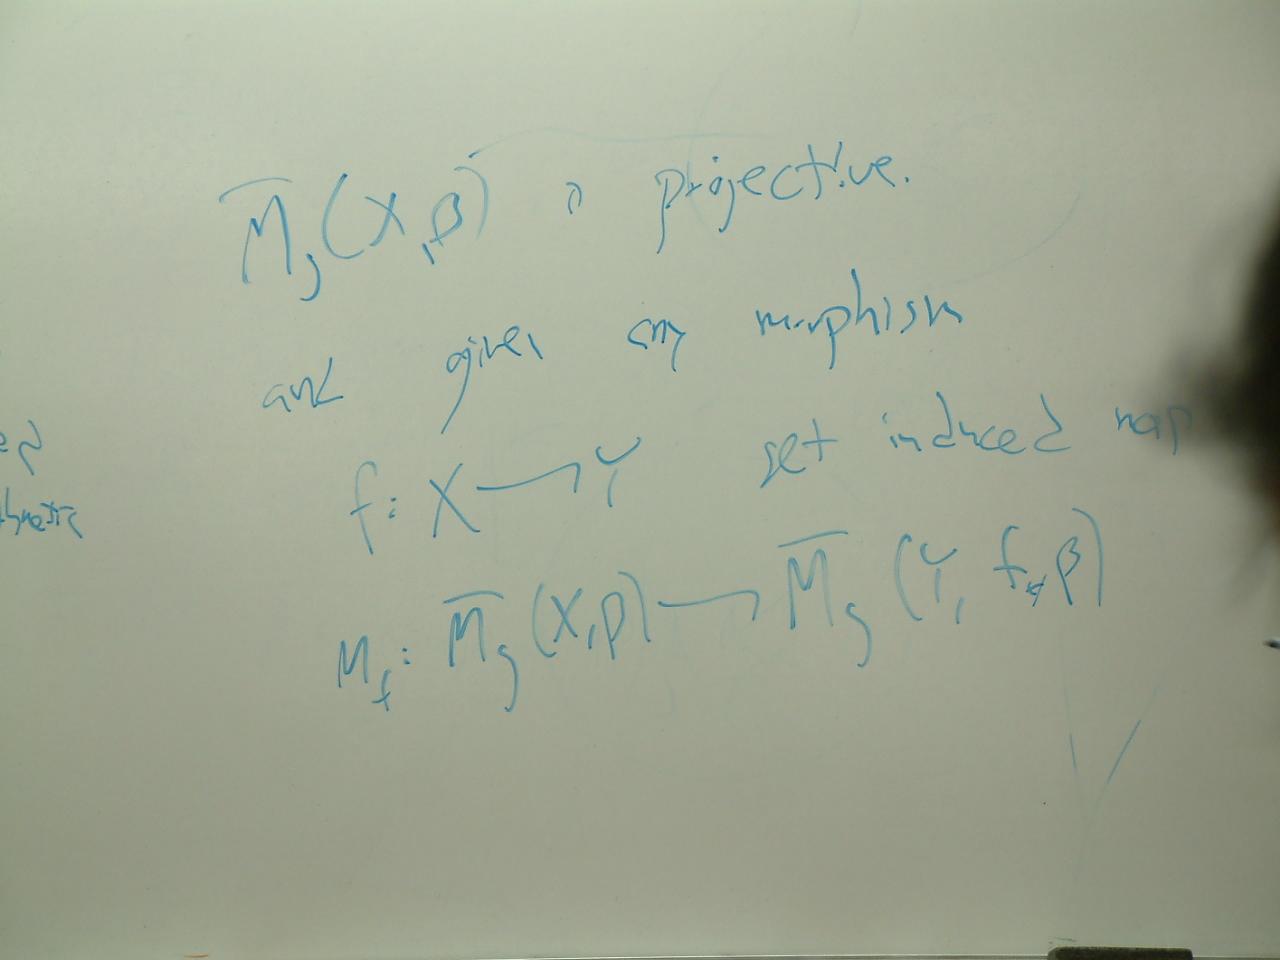 M̅g(X,β) is projective.
and given any morphism
f: X → Y get induced map
M_f: M̅g(X,β) → M̅g(Y, f_*β)